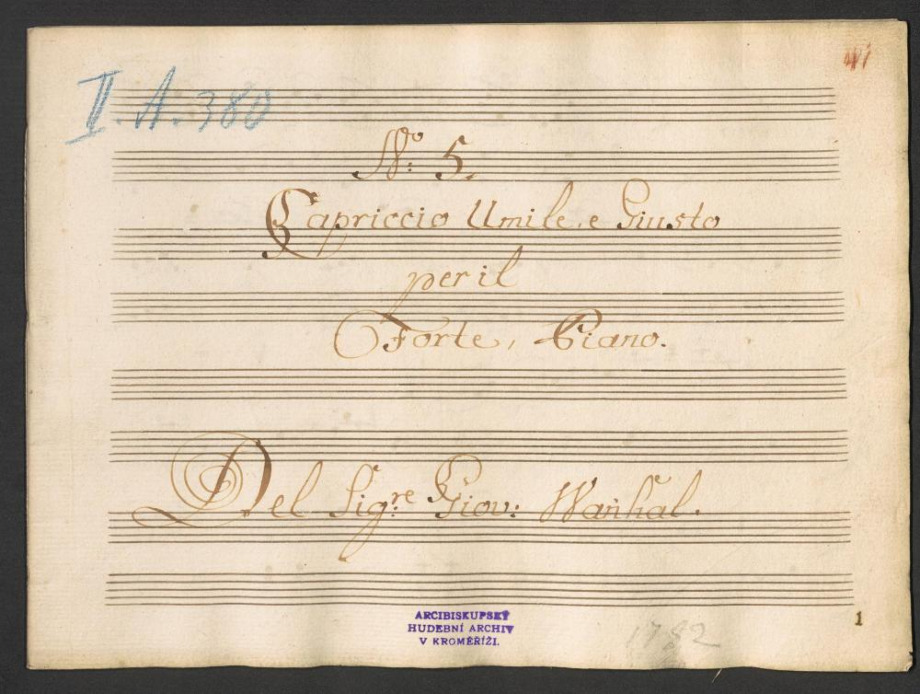 II. A. 380
No: 5.
Capriccio Umile, e Giusto
per il
Forte, Piano.
Del Sig:re Giov: Wañhal.
ARCIBISKUPSKÝ
HUDEBNÍ ARCHIV
V KROMĚŘÍŽI.
1782
1